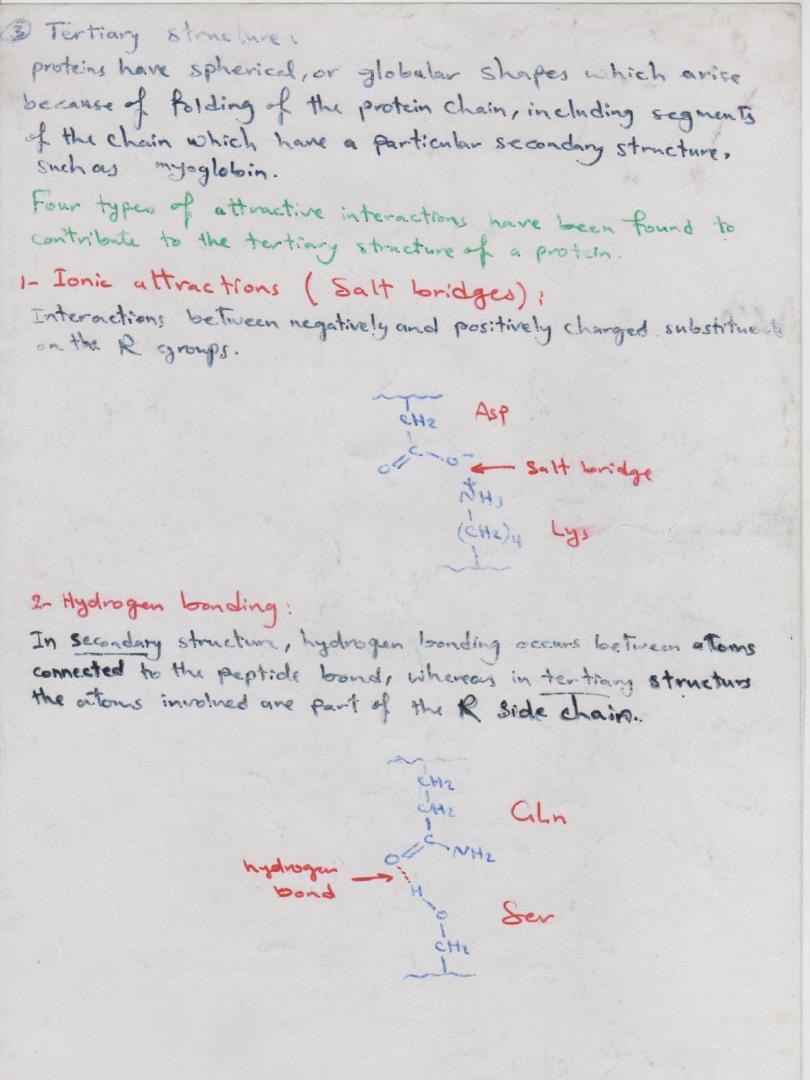 3 Tertiary structure:
proteins have spherical, or globular shapes which arise
because of folding of the protein chain, including segments
of the chain which have a particular secondary structure,
such as myoglobin.
Four types of attractive interactions have been found to
contribute to the tertiary structure of a protein.
1- Ionic attractions (Salt bridges):
Interactions between negatively and positively charged substituents
on the R groups.
CH2 Asp
C
O O-
Salt bridge
+
NH3
(CH2)4 Lys
2- Hydrogen bonding:
In secondary structure, hydrogen bonding occurs between atoms
connected to the peptide bond, whereas in tertiary structure
the atoms involved are part of the R side chain..
CH2
CH2 GLn
C
O NH2
hydrogen
bond
H
O Ser
CH2